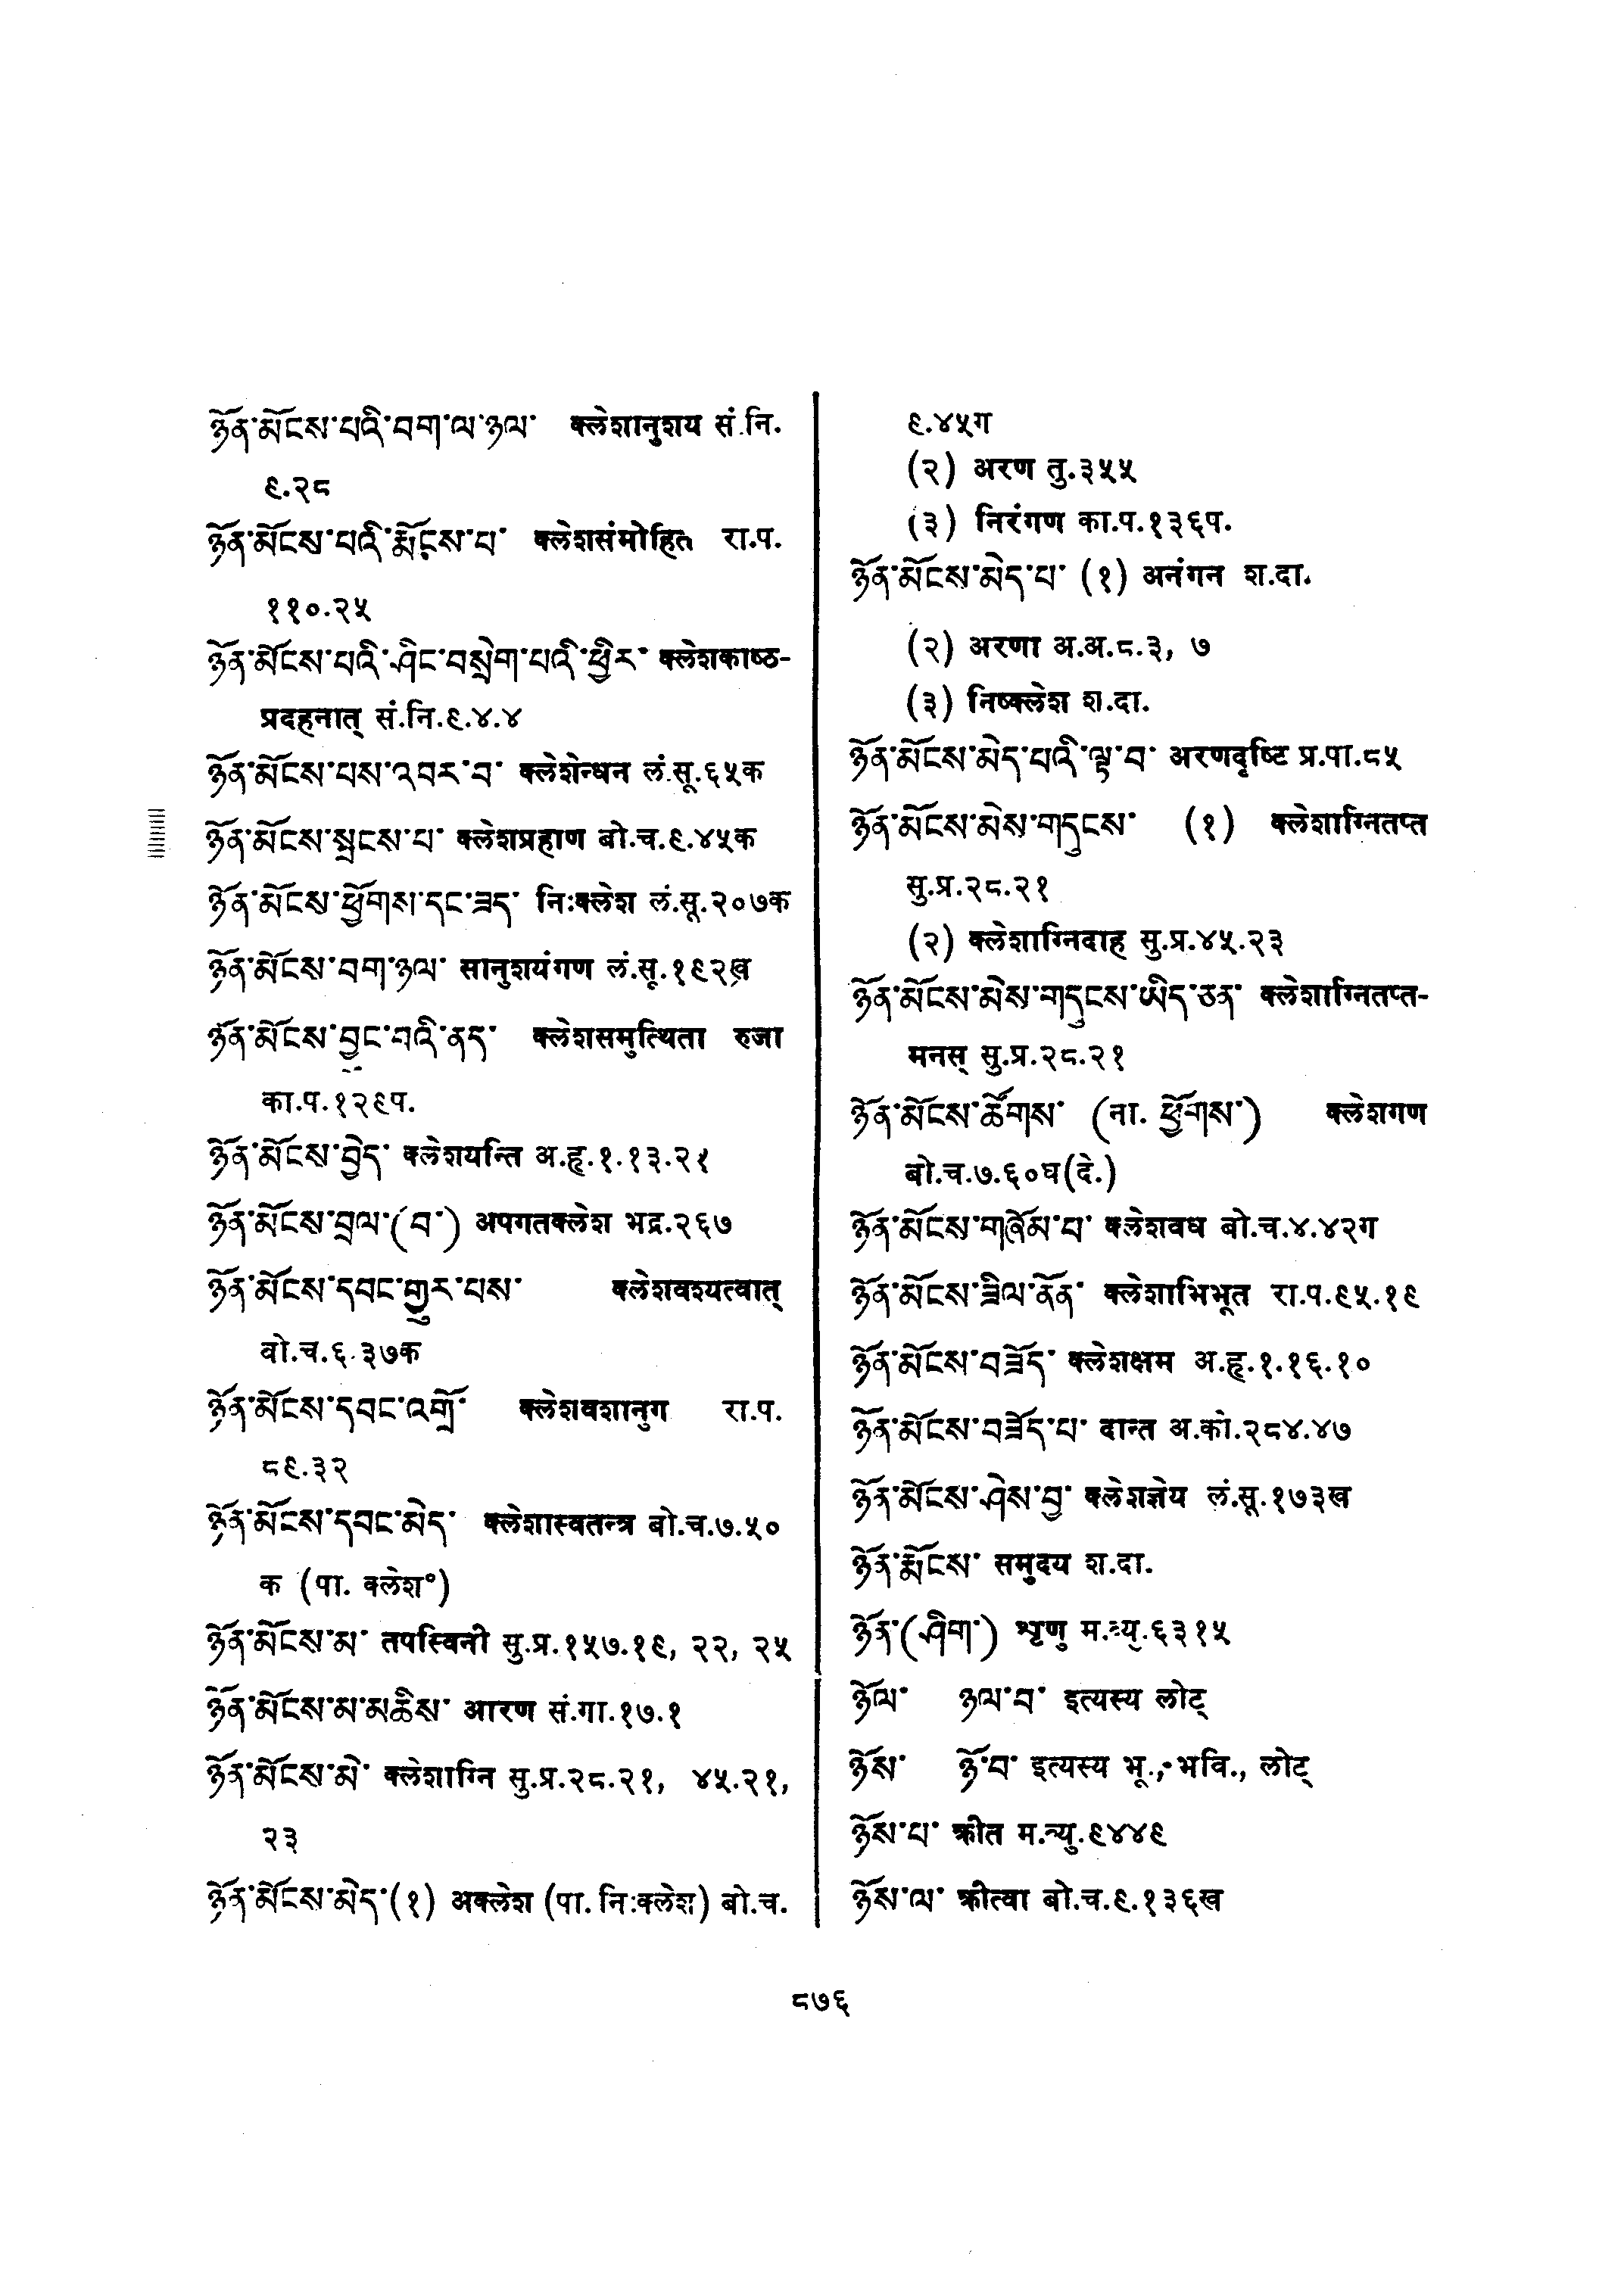 ཉོན་མོངས་པའི་བག་ལ་ཉལ་ क्लेशानुशय सं.नि.
९.२८
ཉོན་མོངས་པའི་རྨོངས་པ་ क्लेशसंमोहित रा.प.
११०.२५
ཉོན་མོངས་པའི་ཤིང་བསྲེག་པའི་ཕྱིར་ क्लेशकाष्ठ-
प्रदहनात् सं.नि.९.४.४
ཉོན་མོངས་པས་འབར་བ་ क्लेशेन्धन लं.सू.६५क
ཉོན་མོངས་སྤངས་པ་ क्लेशप्रहाण बो.च.९.४५क
ཉོན་མོངས་ཕྱོགས་དང་ཟད་ निःक्लेश लं.सू.२०७क
ཉོན་མོངས་བག་ཉལ་ सानुशयंगण लं.सू.१९२ख
ཉོན་མོངས་བྱུང་བའི་ནད་ क्लेशसमुत्थिता रुजा
का.प.१२९प.
ཉོན་མོངས་བྱེད་ क्लेशयन्ति अ.हृ.१.१३.२१
ཉོན་མོངས་བྲལ་(བ་) अपगतक्लेश भद्र.२६७
ཉོན་མོངས་དབང་གྱུར་པས་ क्लेशवश्यत्वात्
बो.च.६.३७क
ཉོན་མོངས་དབང་འགྲོ་ क्लेशवशानुग रा.प.
८९.३२
ཉོན་མོངས་དབང་མེད་ क्लेशास्वतन्त्र बो.च.७.५०
क (पा. क्लेश°)
ཉོན་མོངས་མ་ तपस्विनी सु.प्र.१५७.१९, २२, २५
ཉོན་མོངས་མ་མཆིས་ आरण सं.गा.१७.१
ཉོན་མོངས་མེ་ क्लेशाग्नि सु.प्र.२८.२१, ४५.२१,
२३
ཉོན་མོངས་མེད་(१) अक्लेश (पा. निःक्लेश) बो.च.
९.४५ग
(२) अरण तु.३५५
(३) निरंगण का.प.१३६प.
ཉོན་མོངས་མེད་པ་ (१) अनंगन श.दा.
(२) अरणा अ.अ.८.३, ७
(३) निष्क्लेश श.दा.
ཉོན་མོངས་མེད་པའི་ལྟ་བ་ अरणदृष्टि प्र.पा.८५
ཉོན་མོངས་མེས་གདུངས་ (१) क्लेशाग्नितप्त
सु.प्र.२८.२१
(२) क्लेशाग्निदाह सु.प्र.४५.२३
ཉོན་མོངས་མེས་གདུངས་ཡིད་ཅན་ क्लेशाग्नितप्त-
मनस् सु.प्र.२८.२१
ཉོན་མོངས་ཚོགས་ (ना. ཕྱོགས་) क्लेशगण
बो.च.७.६०घ(दे.)
ཉོན་མོངས་གཞོམ་པ་ क्लेशवध बो.च.४.४२ग
ཉོན་མོངས་ཟིལ་ནོན་ क्लेशाभिभूत रा.प.९५.१९
ཉོན་མོངས་བཟོད་ क्लेशक्षम अ.हृ.१.१६.१०
ཉོན་མོངས་བཟོད་པ་ दान्त अ.को.२८४.४७
ཉོན་མོངས་ཤེས་བྱ་ क्लेशज्ञेय लं.सू.१७३ख
ཉོན་རྨོངས་ समुदय श.दा.
ཉོན་(ཤིག་) शृणु म.व्यु.६३१५
ཉོལ་ ཉལ་བ་ इत्यस्य लोट्
ཉོས་ ཉོ་བ་ इत्यस्य भू., भवि., लोट्
ཉོས་པ་ क्रीत म.व्यु.९४४९
ཉོས་ལ་ क्रीत्वा बो.च.९.१३६ख
८७६